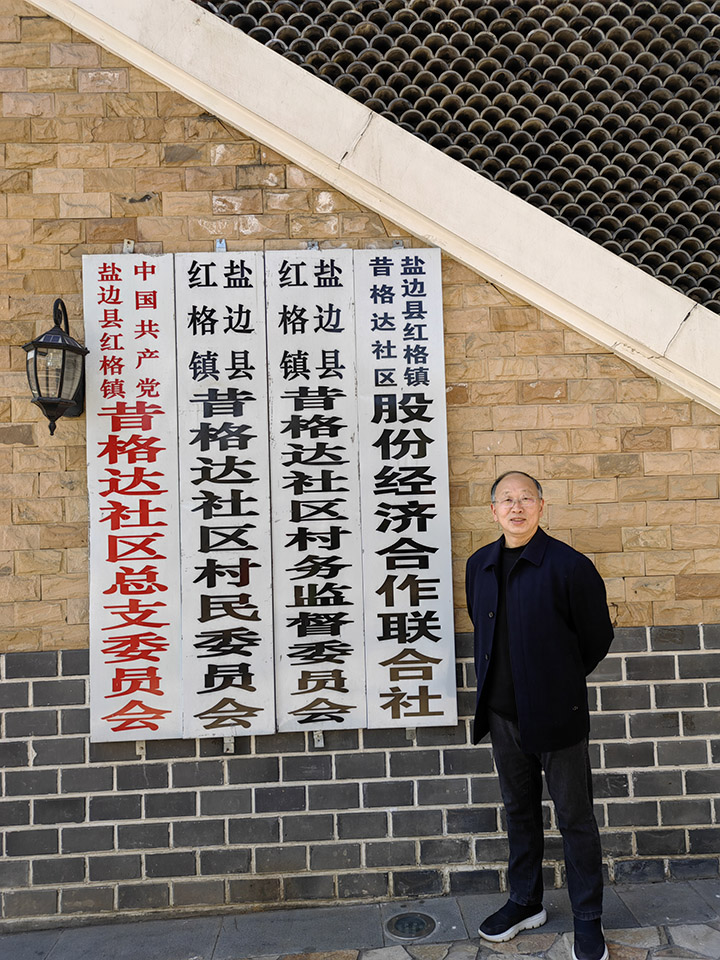 中国共产党
盐边县红格镇
昔格达社区总支委员会
盐边县
红格镇
昔格达社区村民委员会
盐边县
红格镇
昔格达社区村务监督委员会
盐边县红格镇
昔格达社区
股份经济合作联合社